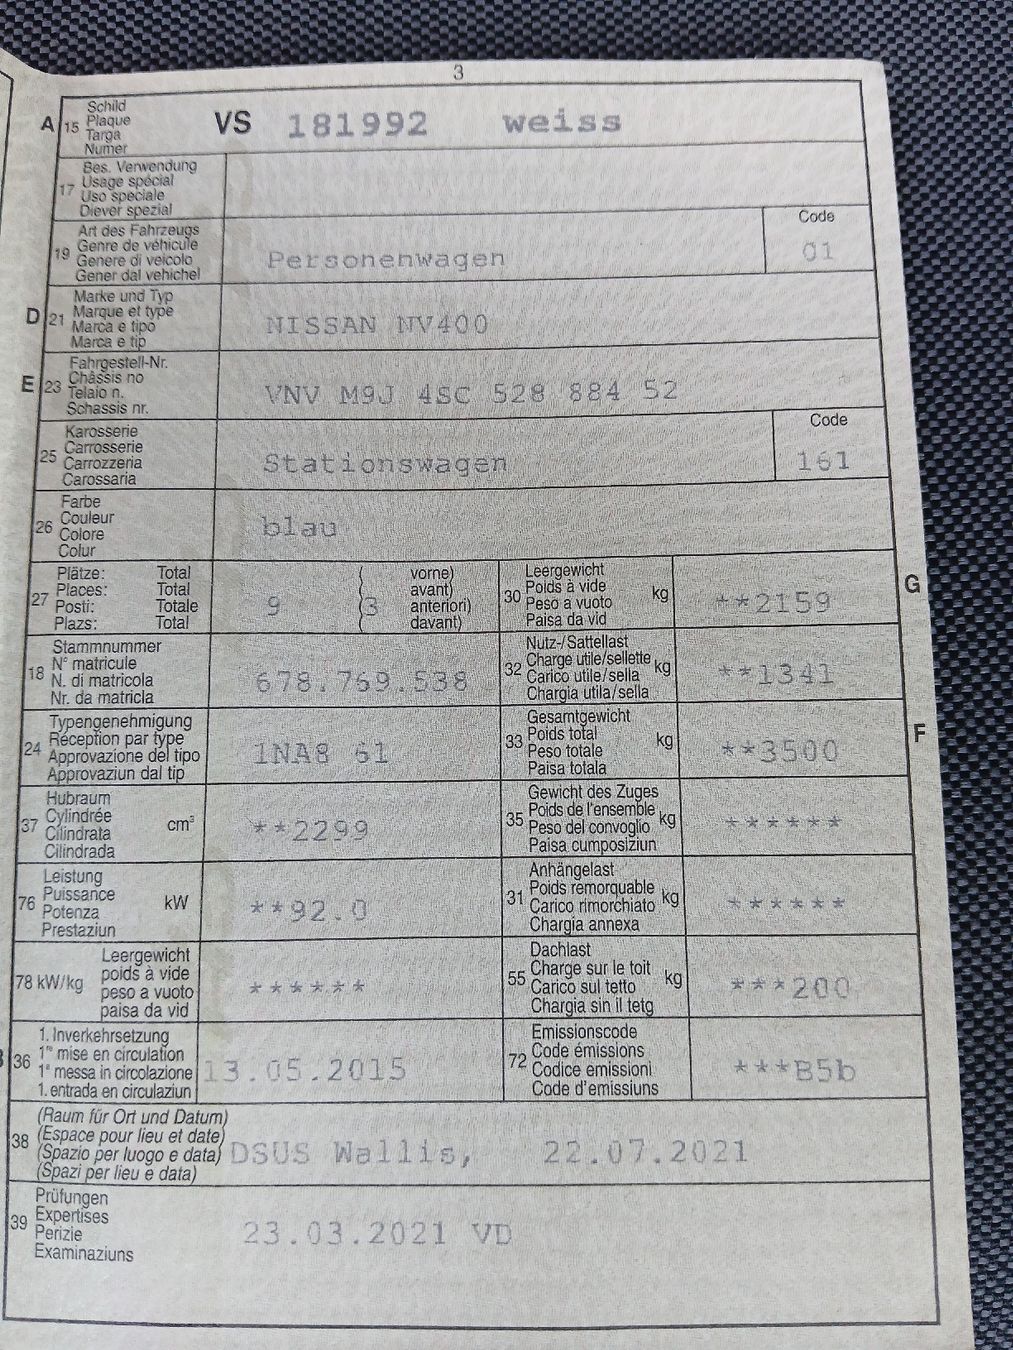 3
A 15 Schild Plaque Targa Numer VS 181992 weiss
17 Bes. Verwendung Usage spécial Uso speciale Diever spezial
19 Art des Fahrzeugs Genre de véhicule Genere di veicolo Gener dal vehichel Personenwagen Code 01
D 21 Marke und Typ Marque et type Marca e tipo Marca e tip NISSAN NV400
E 23 Fahrgestell-Nr. Châssis no Telaio n. Schassis nr. VNV M9J 4SC 528 884 52
25 Karosserie Carrosserie Carrozzeria Carossaria Stationswagen Code 161
26 Farbe Couleur Colore Colur blau
27 Plätze: Total Places: Total Posti: Totale Plazs: Total 9 (3 vorne) avant) anteriori) davant)
30 Leergewicht Poids à vide Peso a vuoto Paisa da vid kg **2159 G
18 Stammnummer N° matricule N. di matricola Nr. da matricla 678.769.538
32 Nutz-/Sattellast Charge utile/sellette Carico utile/sella Chargia utila/sella kg **1341
24 Typengenehmigung Réception par type Approvazione del tipo Approvaziun dal tip 1NA8 61
33 Gesamtgewicht Poids total Peso totale Paisa totala kg **3500 F
37 Hubraum Cylindrée Cilindrata Cilindrada cm³ **2299
35 Gewicht des Zuges Poids de l'ensemble Peso del convoglio Paisa cumposiziun kg ******
76 Leistung Puissance Potenza Prestaziun kW **92.0
31 Anhängelast Poids remorquable Carico rimorchiato Chargia annexa kg ******
78 kW/kg Leergewicht poids à vide peso a vuoto paisa da vid ******
55 Dachlast Charge sur le toit Carico sul tetto Chargia sin il tetg kg ***200
36 1. Inverkehrsetzung 1re mise en circulation 1a messa in circolazione 1. entrada en circulaziun 13.05.2015
72 Emissionscode Code émissions Codice emissioni Code d'emissiuns ***B5b
38 (Raum für Ort und Datum) (Espace pour lieu et date) (Spazio per luogo e data) (Spazi per lieu e data) DSUS Wallis, 22.07.2021
39 Prüfungen Expertises Perizie Examinaziuns 23.03.2021 VD